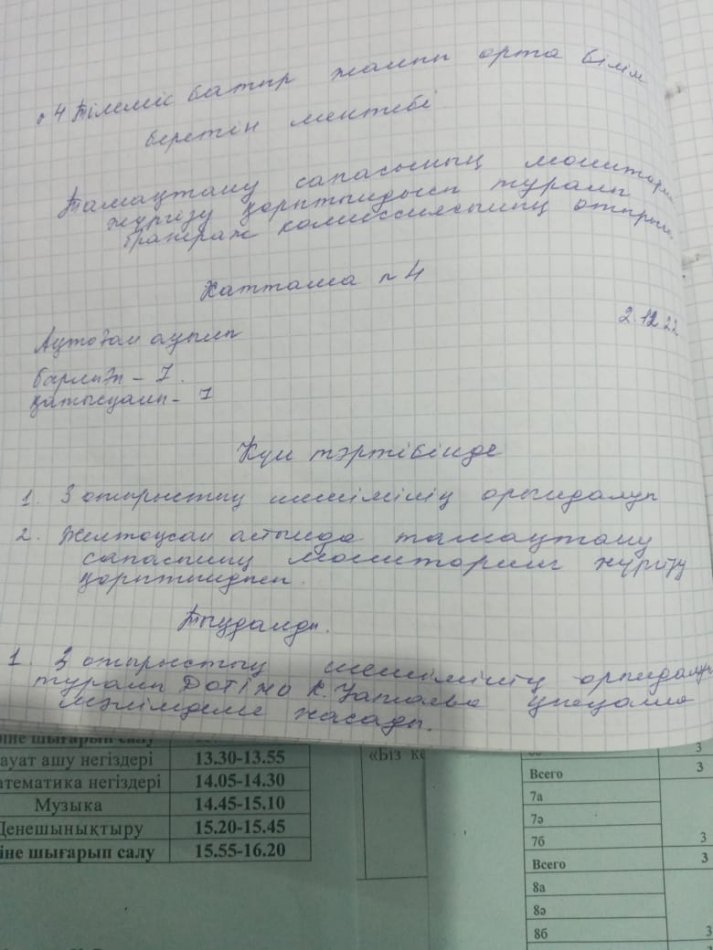 №4 Тілеміс батыр жалпы орта білім
беретін мектебі
Тамақтану сапасының мониторинг
жүргізу қорытындысы туралы
бракераж комиссиясының отырысы
Хаттама №4
2.12.22
Ақтоған ауылы
барлығы - 7.
қатысқаны - 7
Күн тәртібінде
1. 3 отырыстың шешімінің орындалуы
2. Желтоқсан айында тамақтану
сапасының мониторинг жүргізу
қорытындысы.
Тыңдалды.
1. 3 отырыстың шешімінің орындалуы
туралы ДОТІЖО К.
мәлімдеме жасады.
іне шығарып салу
ауат ашу негіздері 13.30-13.55
атематика негіздері 14.05-14.30
Музыка 14.45-15.10
Денешынықтыру 15.20-15.45
іне шығарып салу 15.55-16.20
«Біз ке
3
Всего 3
7а
7ә
7б 3
Всего 3
8а
8ә
8б 3